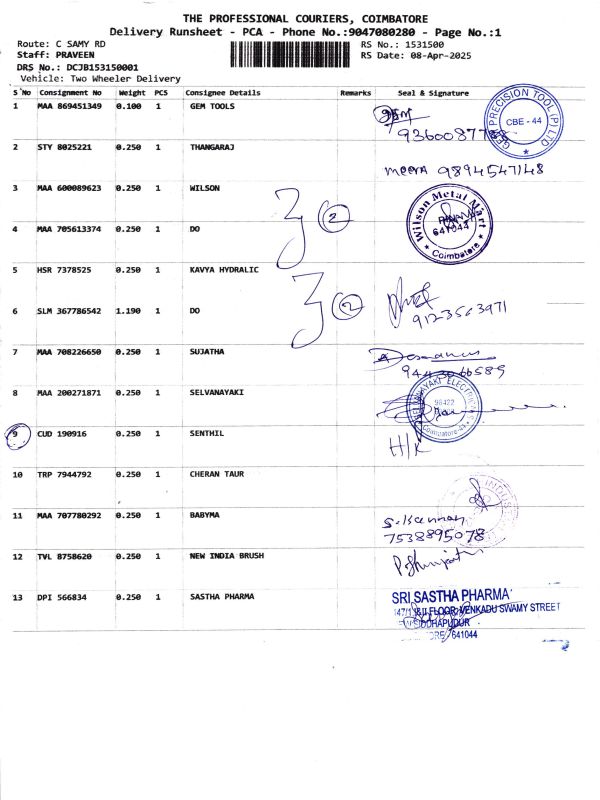 THE PROFESSIONAL COURIERS, COIMBATORE
Delivery Runsheet - PCA - Phone No.:9047080280 - Page No.:1
Route: C SAMY RD
RS No.: 1531500
Staff: PRAVEEN
RS Date: 08-Apr-2025
DRS No.: DCJB153150001
Vehicle: Two Wheeler Delivery
S No Consignment No Weight PCS Consignee Details Remarks Seal & Signature
1 MAA 869451349 0.100 1 GEM TOOLS
GEM PRECISION TOOL (P) LTD
CBE - 44
2 STY 8025221 0.250 1 THANGARAJ
meera 9894547148
3 MAA 600089623 0.250 1 WILSON
Wilson Metal Mart
641044
Coimbatore
3 2
4 MAA 705613374 0.250 1 DO
5 HSR 7378525 0.250 1 KAVYA HYDRALIC
3 2
6 SLM 367786542 1.190 1 DO
9123563971
7 MAA 708226650 0.250 1 SUJATHA
8 MAA 200271871 0.250 1 SELVANAYAKI
SELVANAYAKI ELECTRICALS
Coimbatore-44
9 CUD 190916 0.250 1 SENTHIL
H/K
10 TRP 7944792 0.250 1 CHERAN TAUR
11 MAA 707780292 0.250 1 BABYMA
S. Kannan
7538895078
12 TVL 8758620 0.250 1 NEW INDIA BRUSH
13 DPI 566834 0.250 1 SASTHA PHARMA
SRI SASTHA PHARMA
FLOOR, VENKADU SWAMY STREET
SIDDHAPUDUR
641044